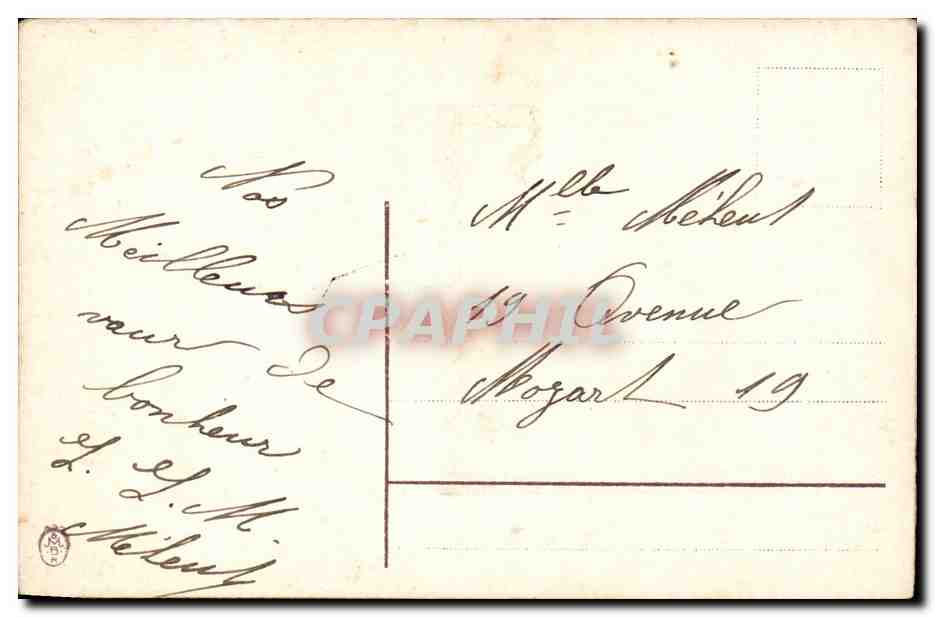 Nos
Meilleurs
vœux de
bonheur
L. L. M
Méheut
Mlle Méheut
19 Avenue
Mozart 19
CPAPHIL